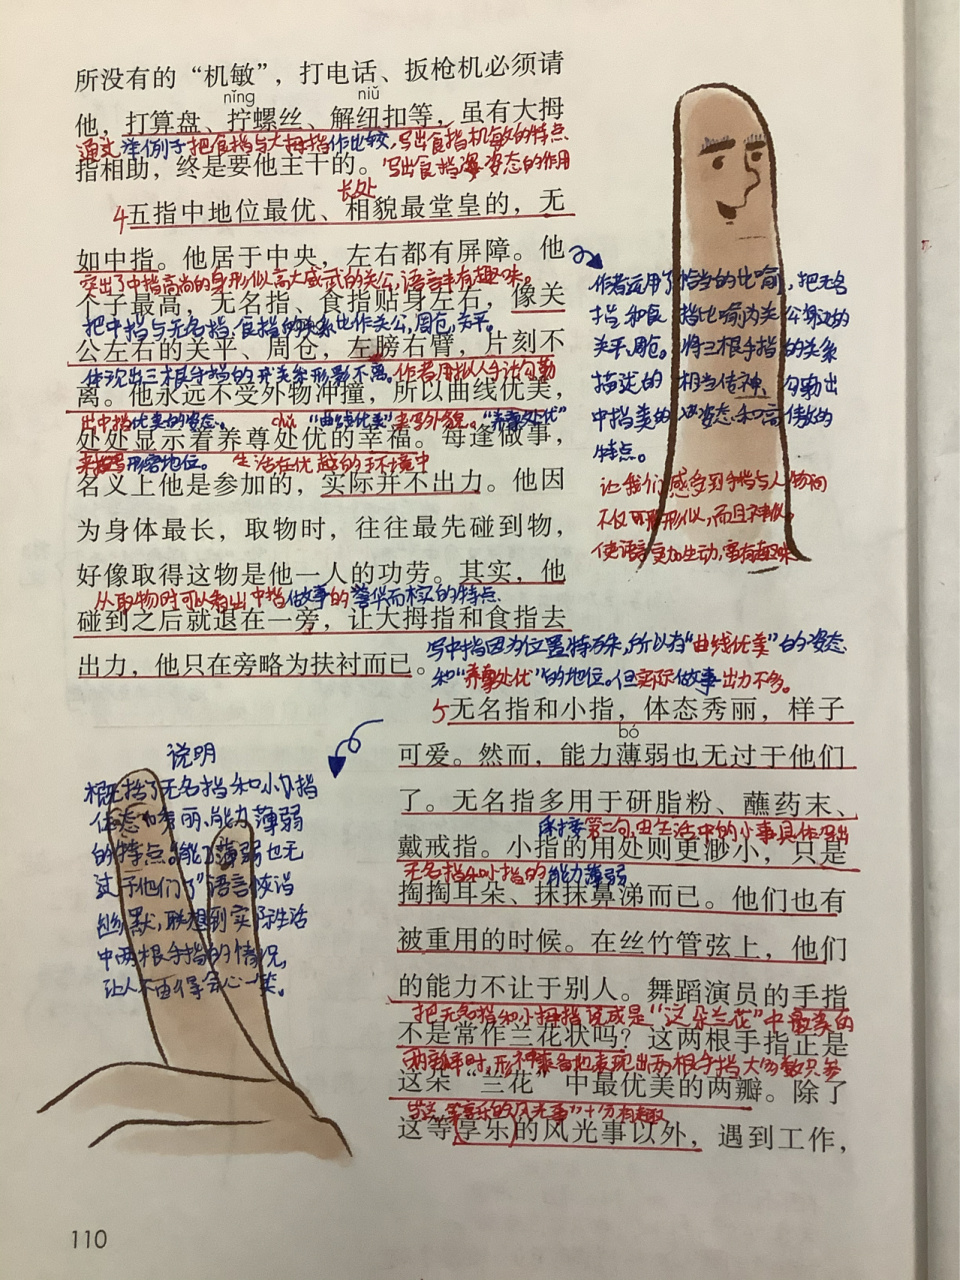 所没有的“机敏”，打电话、扳枪机必须请
nǐng niǔ
他，打算盘、拧螺丝、解纽扣等，虽有大拇
通过举例子把食指与大拇指作比较，写出食指机敏的特点
指相助，终是要他主干的。
写出食指姿态的作用
长处
4五指中地位最优、相貌最堂皇的，无
如中指。他居于中央，左右都有屏障。他
突出了中指高尚的身形似高大威武的关公，语言丰有趣味。
个子最高，无名指、食指贴身左右，像关
把中指与无名指、食指的关系比作关公，周仓，关平。
公左右的关平、周仓，左膀右臂，片刻不
体现出三根手指的关系形影不离。作者用拟人手法勾勒
离。他永远不受外物冲撞，所以曲线优美，
出中指优美的姿态。“曲线优美”来写外貌。“养尊处优”
处处显示着养尊处优的幸福。每逢做事，
来形容地位。生活在优越的环境中
名义上他是参加的，实际并不出力。他因
为身体最长，取物时，往往最先碰到物，
好像取得这物是他一人的功劳。其实，他
从取物时可以看出中指做事的华而不实的特点
碰到之后就退在一旁，让大拇指和食指去
出力，他只在旁略为扶衬而已。
写中指因为位置特殊，所以有“曲线优美”的姿态
和“养尊处优”的地位。但实际做事出力不多。
作者运用了恰当的比喻，把无名
指和食指比喻为关公身边的
关平、周仓。将三根手指的关系
描述的相当传神，勾勒出
中指美的姿态和高傲的
特点。
让我们感受到手指与人物间
不仅形似，而且神似。
使语言更加生动，富有趣味
5无名指和小指，体态秀丽，样子
bó
可爱。然而，能力薄弱也无过于他们
了。无名指多用于研脂粉、蘸药末、
承接第二句，由生活中的小事具体写出
戴戒指。小指的用处则更渺小，只是
无名指和小指的能力薄弱
掏掏耳朵、抹抹鼻涕而已。他们也有
被重用的时候。在丝竹管弦上，他们
的能力不让于别人。舞蹈演员的手指
把无名指和小拇指说成是“这朵兰花”中最美的
不是常作兰花状吗？这两根手指正是
两瓣时，形神兼备地表现出两根手指大多数只参
这朵“兰花”中最优美的两瓣。除了
等享乐的风光事”十分有趣
这等享乐的风光事以外，遇到工作，
说明
概括了无名指和小指
体态秀丽、能力薄弱
的特点。“能力薄弱也无
过于他们了”语言诙谐
幽默，联想到实际生活
中两根手指的情况，
让人不由得会心一笑。
110